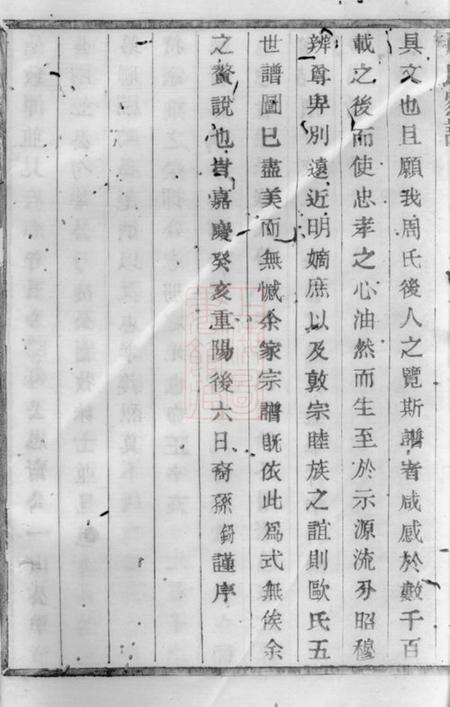 具文也且願我周氏後人之覽斯譜者咸感於數千百
載之後而使忠孝之心油然而生至於示源流分昭穆
辨尊卑別遠近明嫡庶以及敦宗睦族之誼則歐氏五
世譜圖已盡美而無憾余家宗譜旣依此爲式無俟余
之贅說也旹嘉慶癸亥重陽後六日裔孫謹序